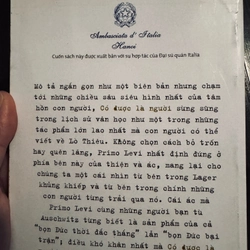 Ambasciata d'Italia
Hanoi
Cuốn sách này được xuất bản với sự hợp tác của Đại sứ quán Italia
Mô tả ngắn gọn như một biên bản nhưng chạm
tới những chiều sâu siêu hình nhất của tâm
hồn con người, Có được là người sừng sững
trong lịch sử văn học như một trong những
tác phẩm lớn lao nhất mà con người có thể
viết về Lò Thiêu. Không chọn cách bỏ trốn
hay quên lãng, Primo Levi nhất định đứng ở
phía bên này của thiện và ác, mang lại cho
chúng ta một cái nhìn từ bên trong Lager
khủng khiếp và từ bên trong chính những
con người từng trải qua nó. Cái ác mà
Primo Levi cùng những người bạn tù
Auschwitz từng biết là sản phẩm của cả
"bọn Đức thời đắc thắng" lẫn "bọn Đức bại
trận"; điều khó khăn nhất mà Có được là